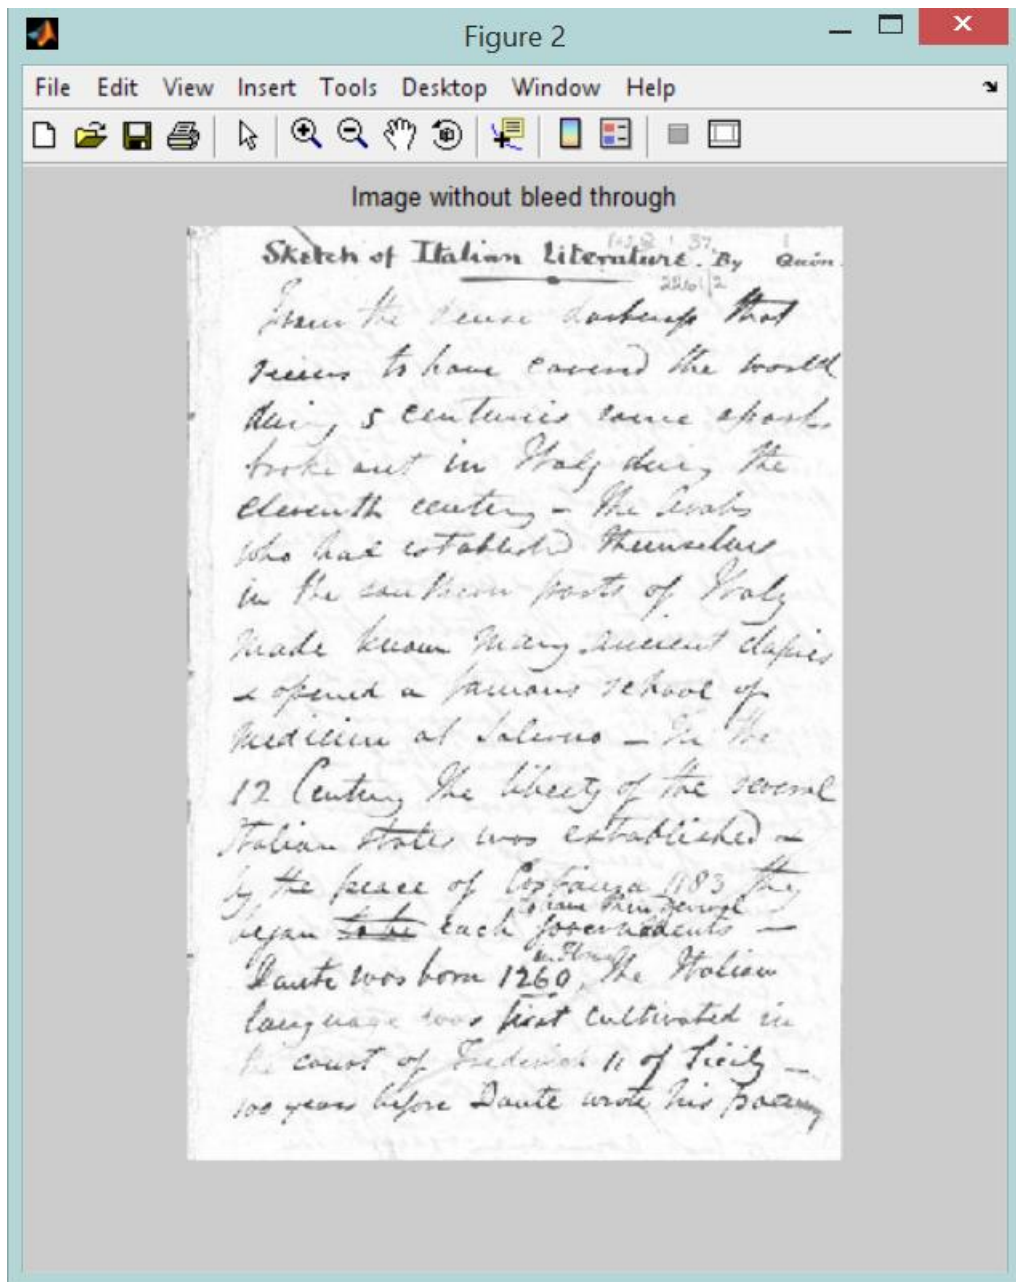 Figure 2
File Edit View Insert Tools Desktop Window Help
Image without bleed through
Sketch of Italian Literature. By Quin.
2261/2
From the dense darkness that
seems to have covered the world
during 5 centuries some sparks
broke out in Italy during the
eleventh century - the Arabs
who had established themselves
in the southern parts of Italy
made known many ancient
& opened a famous school of
medicine at Salerno - In the
12 Century the liberty of the several
Italian states was established &
by the peace of 1183 they
to have their several
began to be each governments -
Dante was born 1260, the Italian
language was first cultivated in
the court of Frederick 11 of Sicily -
100 years before Dante wrote his